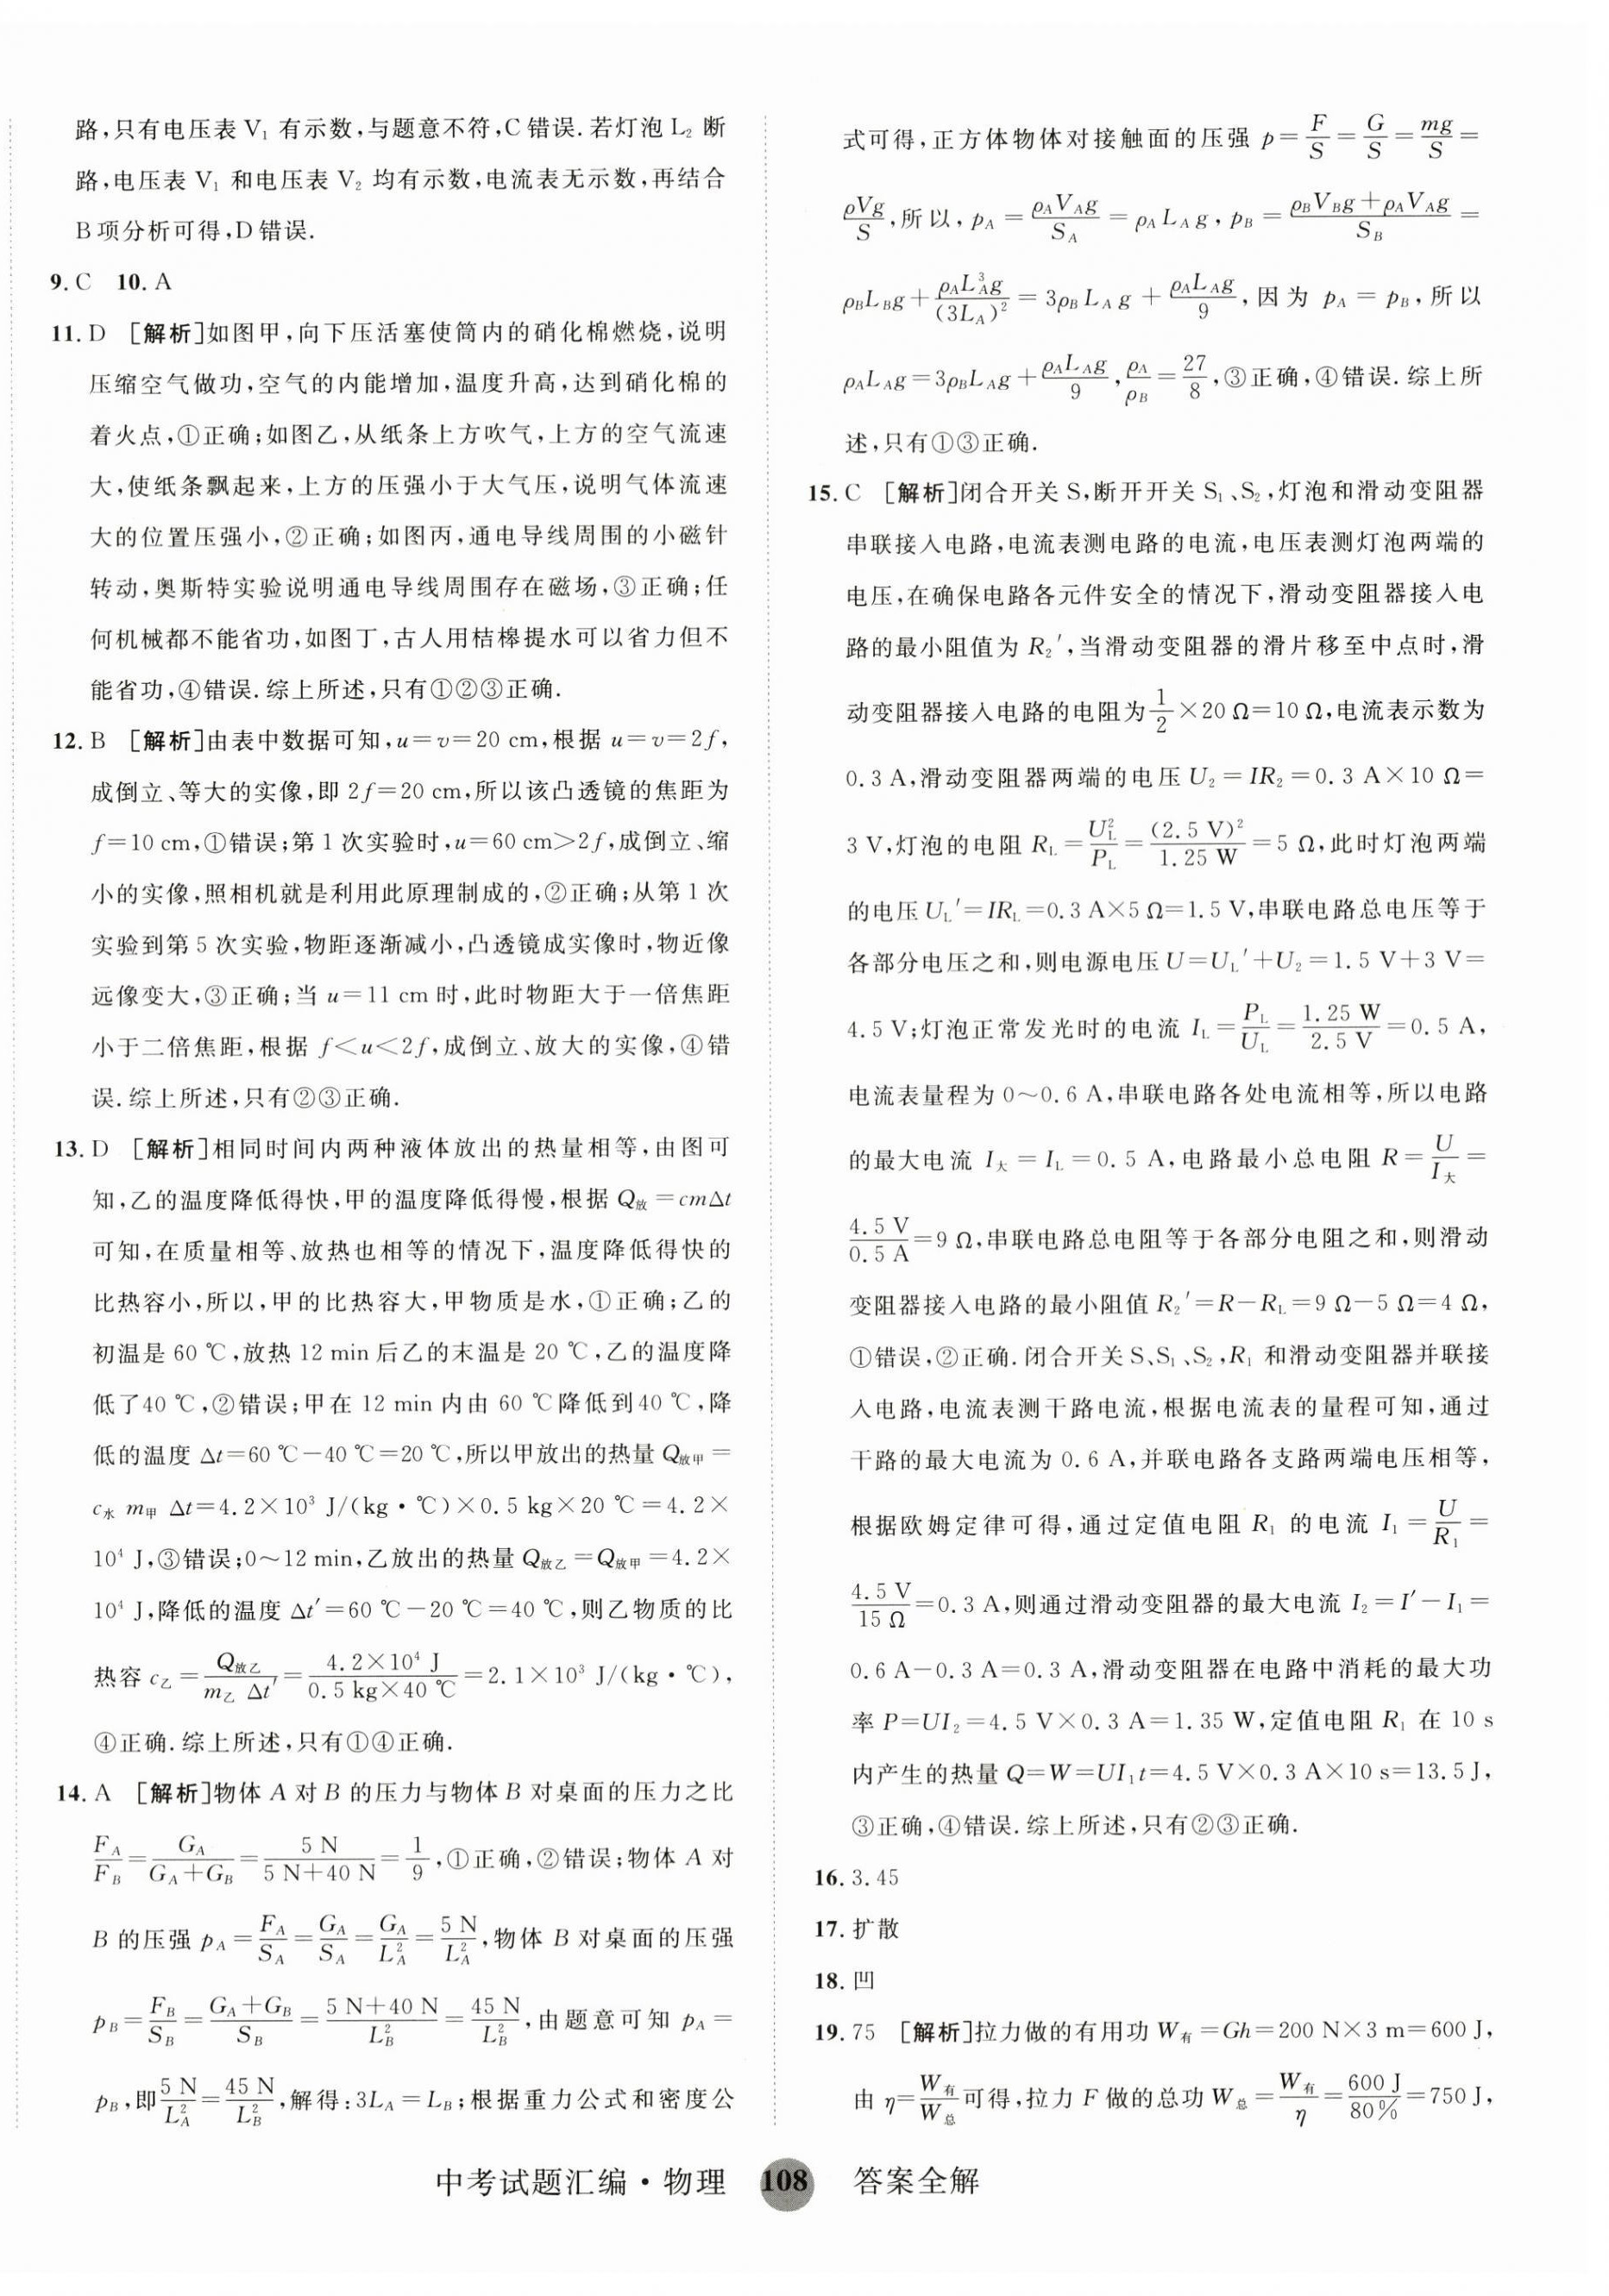 路,只有电压表 V₁ 有示数,与题意不符,C 错误. 若灯泡 L₂ 断
路,电压表 V₁ 和电压表 V₂ 均有示数,电流表无示数,再结合
B 项分析可得,D 错误.
9. C  10. A
11. D [解析]如图甲,向下压活塞使筒内的硝化棉燃烧,说明
压缩空气做功,空气的内能增加,温度升高,达到硝化棉的
着火点,①正确;如图乙,从纸条上方吹气,上方的空气流速
大,使纸条飘起来,上方的压强小于大气压,说明气体流速
大的位置压强小,②正确;如图丙,通电导线周围的小磁针
转动,奥斯特实验说明通电导线周围存在磁场,③正确;任
何机械都不能省功,如图丁,古人用桔槔提水可以省力但不
能省功,④错误. 综上所述,只有①②③正确.
12. B [解析]由表中数据可知,u=v=20 cm,根据 u=v=2f,
成倒立、等大的实像,即 2f=20 cm,所以该凸透镜的焦距为
f=10 cm,①错误;第 1 次实验时,u=60 cm>2f,成倒立、缩
小的实像,照相机就是利用此原理制成的,②正确;从第 1 次
实验到第 5 次实验,物距逐渐减小,凸透镜成实像时,物近像
远像变大,③正确;当 u=11 cm 时,此时物距大于一倍焦距
小于二倍焦距,根据 f<u<2f,成倒立、放大的实像,④错
误. 综上所述,只有②③正确.
13. D [解析]相同时间内两种液体放出的热量相等,由图可
知,乙的温度降低得快,甲的温度降低得慢,根据 Q放=cmΔt
可知,在质量相等、放热也相等的情况下,温度降低得快的
比热容小,所以,甲的比热容大,甲物质是水,①正确;乙的
初温是 60 ℃,放热 12 min 后乙的末温是 20 ℃,乙的温度降
低了40 ℃,②错误;甲在 12 min 内由 60 ℃降低到40 ℃,降
低的温度 Δt=60 ℃-40 ℃=20 ℃,所以甲放出的热量 Q放甲=
c水 m甲 Δt=4.2×10³ J/(kg·℃)×0.5 kg×20 ℃=4.2×
10⁴ J,③错误;0～12 min,乙放出的热量 Q放乙=Q放甲=4.2×
10⁴ J,降低的温度 Δt′=60 ℃-20 ℃=40 ℃,则乙物质的比
热容 c乙=Q放乙/(m乙 Δt′)=(4.2×10⁴ J)/(0.5 kg×40 ℃)=2.1×10³ J/(kg·℃),
④正确. 综上所述,只有①④正确.
14. A [解析]物体 A 对 B 的压力与物体 B 对桌面的压力之比
F_A/F_B=G_A/(G_A+G_B)=5 N/(5 N+40 N)=1/9,①正确,②错误;物体 A 对
B 的压强 p_A=F_A/S_A=G_A/S_A=G_A/L_A²=5 N/L_A²,物体 B 对桌面的压强
p_B=F_B/S_B=(G_A+G_B)/S_B=(5 N+40 N)/L_B²=45 N/L_B²,由题意可知 p_A=
p_B,即5 N/L_A²=45 N/L_B²,解得:3L_A=L_B;根据重力公式和密度公
式可得,正方体物体对接触面的压强 p=F/S=G/S=mg/S=
ρVg/S,所以,p_A=ρ_A V_A g/S_A=ρ_A L_A g,p_B=(ρ_B V_B g+ρ_A V_A g)/S_B=
ρ_B L_B g+ρ_A L_A³ g/(3L_A)²=3ρ_B L_A g+ρ_A L_A g/9,因为 p_A=p_B,所以
ρ_A L_A g=3ρ_B L_A g+ρ_A L_A g/9,ρ_A/ρ_B=27/8,③正确,④错误. 综上所
述,只有①③正确.
15. C [解析]闭合开关 S,断开开关 S₁、S₂,灯泡和滑动变阻器
串联接入电路,电流表测电路的电流,电压表测灯泡两端的
电压,在确保电路各元件安全的情况下,滑动变阻器接入电
路的最小阻值为 R₂′,当滑动变阻器的滑片移至中点时,滑
动变阻器接入电路的电阻为1/2×20 Ω=10 Ω,电流表示数为
0.3 A,滑动变阻器两端的电压 U₂=IR₂=0.3 A×10 Ω=
3 V,灯泡的电阻 R_L=U_L²/P_L=(2.5 V)²/1.25 W=5 Ω,此时灯泡两端
的电压 U_L′=IR_L=0.3 A×5 Ω=1.5 V,串联电路总电压等于
各部分电压之和,则电源电压 U=U_L′+U₂=1.5 V+3 V=
4.5 V;灯泡正常发光时的电流 I_L=P_L/U_L=1.25 W/2.5 V=0.5 A,
电流表量程为 0～0.6 A,串联电路各处电流相等,所以电路
的最大电流 I大=I_L=0.5 A,电路最小总电阻 R=U/I大=
4.5 V/0.5 A=9 Ω,串联电路总电阻等于各部分电阻之和,则滑动
变阻器接入电路的最小阻值 R₂′=R-R_L=9 Ω-5 Ω=4 Ω,
①错误,②正确. 闭合开关 S、S₁、S₂,R₁ 和滑动变阻器并联接
入电路,电流表测干路电流,根据电流表的量程可知,通过
干路的最大电流为 0.6 A,并联电路各支路两端电压相等,
根据欧姆定律可得,通过定值电阻 R₁ 的电流 I₁=U/R₁=
4.5 V/15 Ω=0.3 A,则通过滑动变阻器的最大电流 I₂=I′-I₁=
0.6 A-0.3 A=0.3 A,滑动变阻器在电路中消耗的最大功
率 P=UI₂=4.5 V×0.3 A=1.35 W,定值电阻 R₁ 在 10 s
内产生的热量 Q=W=UI₁t=4.5 V×0.3 A×10 s=13.5 J,
③正确,④错误. 综上所述,只有②③正确.
16. 3.45
17. 扩散
18. 凹
19. 75 [解析]拉力做的有用功 W有=Gh=200 N×3 m=600 J,
由 η=W有/W总可得,拉力 F 做的总功 W总=W有/η=600 J/80%=750 J,
中考试题汇编·物理 108 答案全解